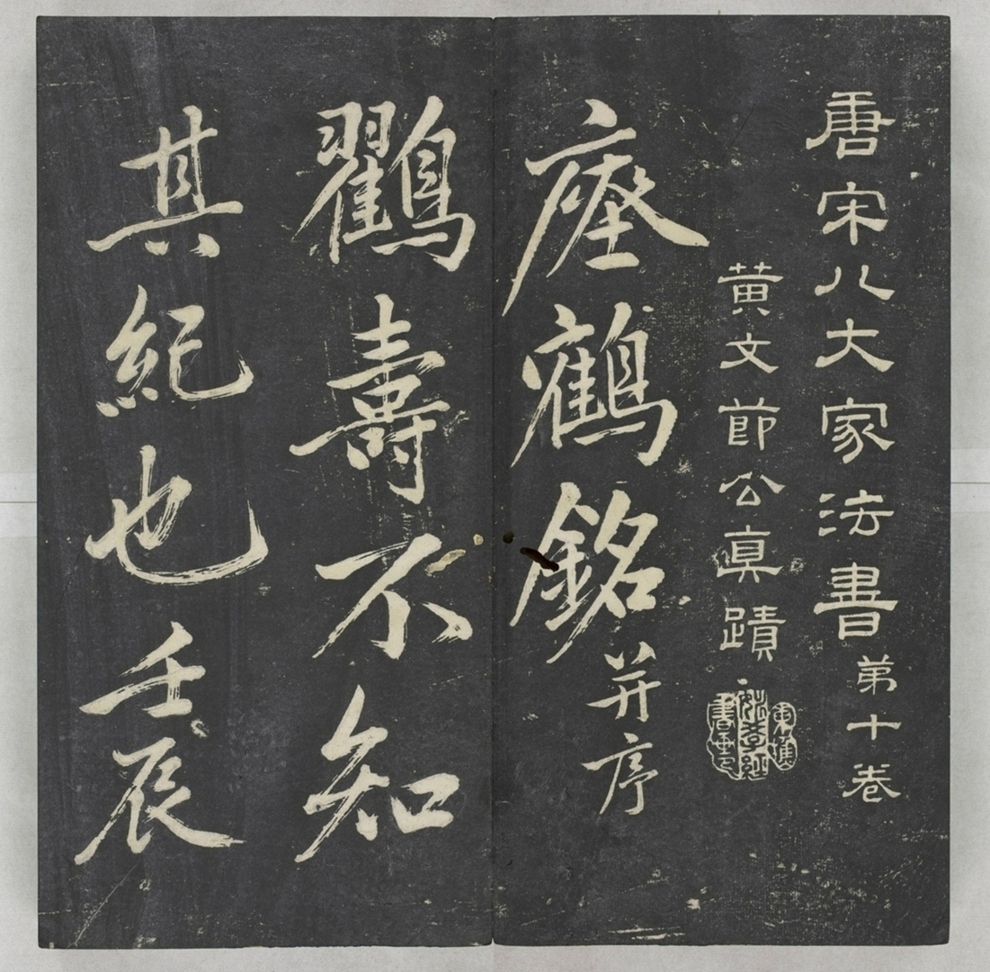 唐宋八大家法書弟十卷
黄文節公真蹟
瘞鶴銘并序
鸖壽不知
其紀也壬辰